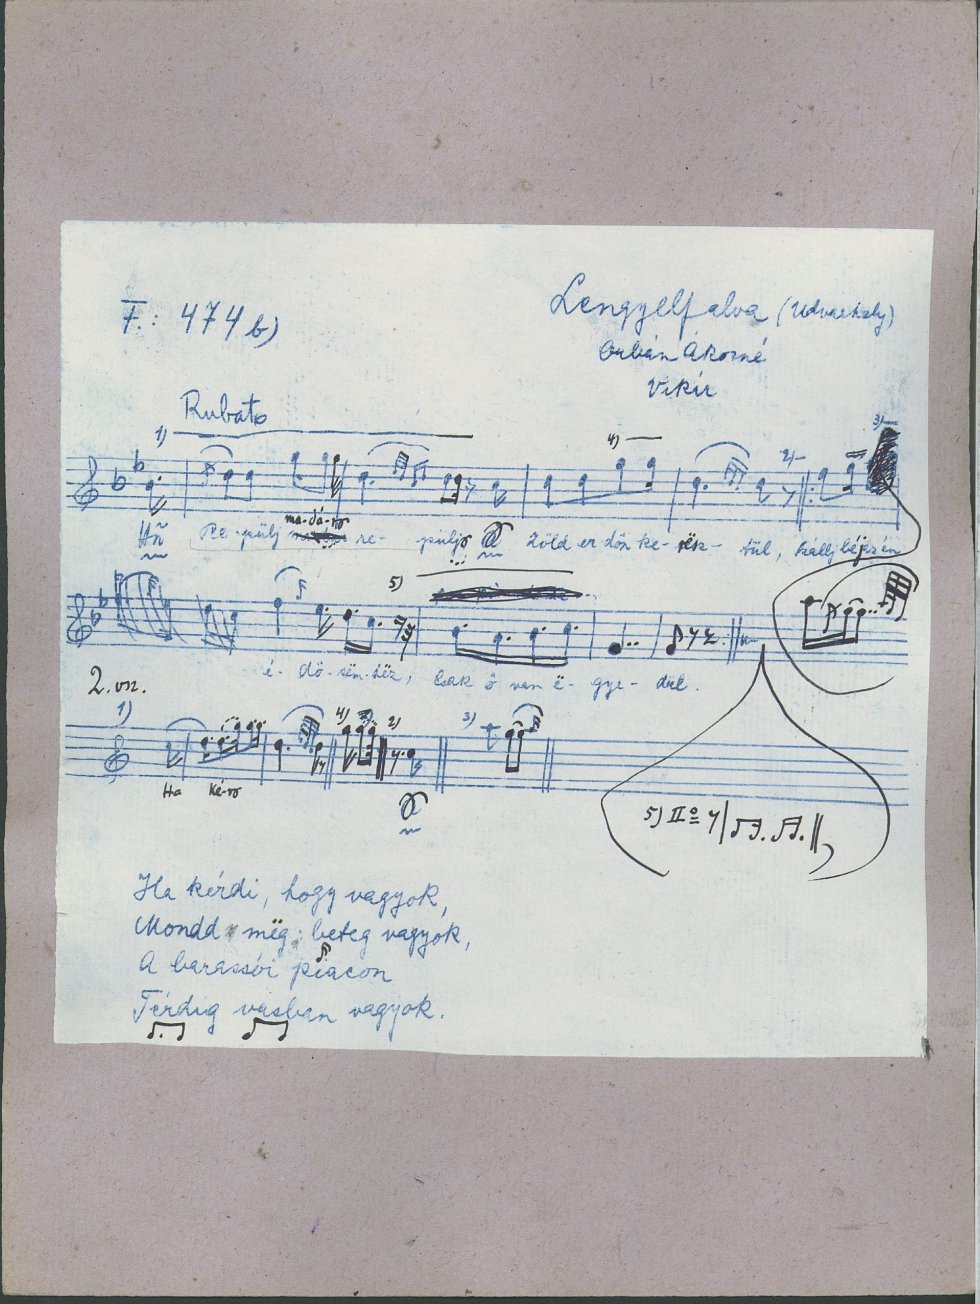 F.: 474 b)
Lengyelfalva (Udvarhely)
Orbán Ákosné
Vikár
Rubato
1)
4)
2)
3)
Hň Re-pülj ma-dá-r re- pülj Zöld er dőn ke- rësz- tül, Szállj
5)
é- dö- sëm-hëz, Csak ő van ë- gye- dül.
2. vsz.
1)
4)
2)
3)
Ha Ké-r
5) II º
Ha kérdi, hogy vagyok,
Mondd mëg: beteg vagyok,
A barassói piacon
Térdig vasban vagyok.